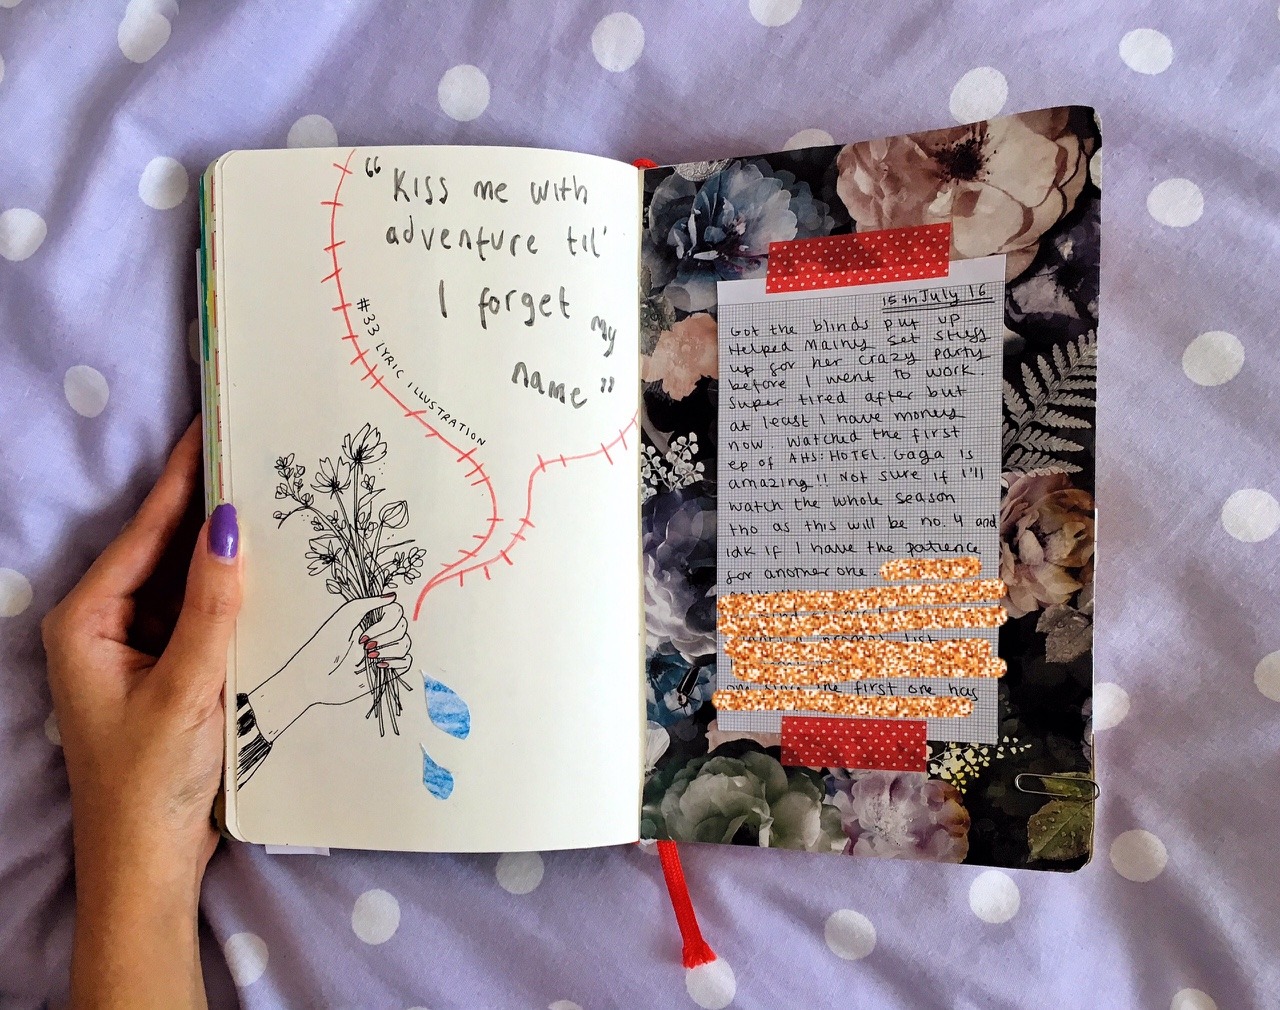 “Kiss me with
adventure til'
I forget
my
name”
#33 LYRIC ILLUSTRATION
15th July 16
Got the blinds put up.
Helped Mainy set stuff
up for her crazy party
before I went to work.
Super tired after but
at least I have money
now. Watched the first
ep of AHS:HOTEL. Gaga is
amazing!! Not sure if I'll
watch the whole season
tho as this will be no. 4 and
idk if I have the patience
for another one.
list
the first one has